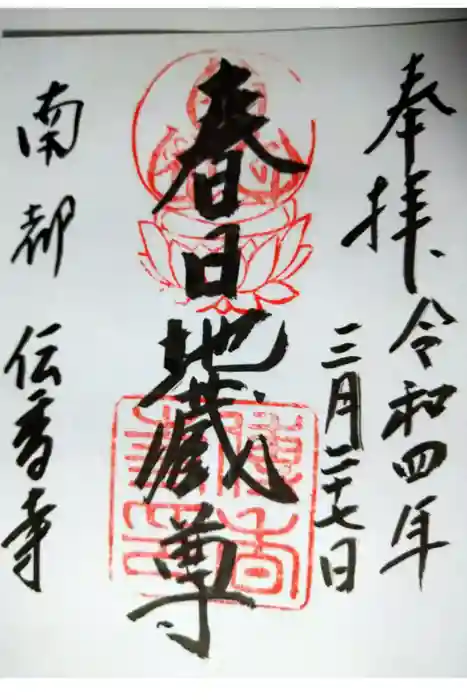 奉拝
令和四年
三月二十七日
春日地蔵尊
南都 伝香寺